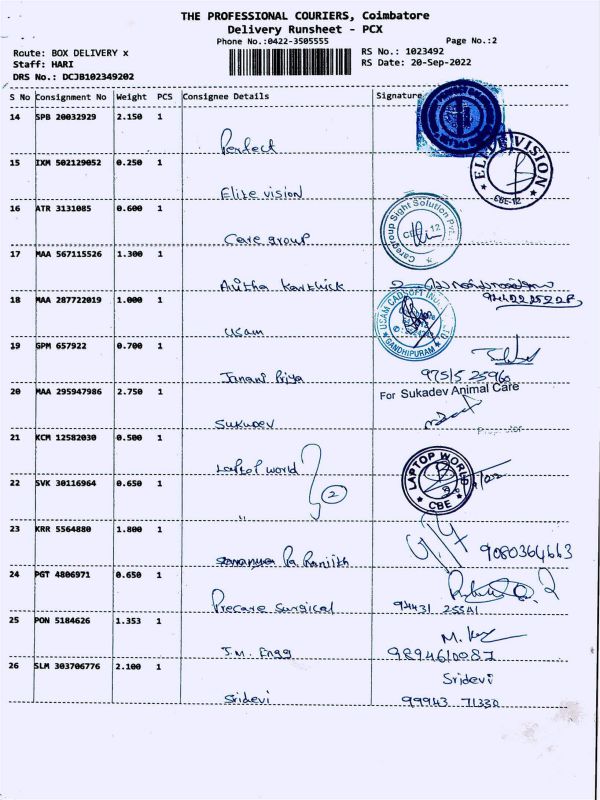 THE PROFESSIONAL COURIERS, Coimbatore
Delivery Runsheet - PCX
Phone No.:0422-3505555 Page No.:2
Route: BOX DELIVERY x RS No.: 1023492
Staff: HARI RS Date: 20-Sep-2022
DRS No.: DCJB102349202
S No Consignment No Weight PCS Consignee Details Signature
14 SPB 20032929 2.150 1
Perfect
15 IXM 502129052 0.250 1
ELITE VISION
CBE-12
Elite vision
16 ATR 3131085 0.600 1
Caregroup Sight Solution Pvt.
CBE-12
Care group
17 MAA 567115526 1.300 1
Anitha Karthick
18 MAA 287722019 1.000 1
USAM CADSOFT
GANDHIPURAM
Usam
19 GPM 657922 0.700 1
Janani Priya 97515 25960
20 MAA 295947986 2.750 1 For Sukadev Animal Care
Sukudev
Proprietor
21 KCM 12582030 0.500 1
LAPTOP WORLD
CBE
Laptop world
22 SVK 30116964 0.650 1
2
"
23 KRR 5564880 1.800 1
P. Ranjith 9080364663
24 PGT 4806971 0.650 1
Precare Surgical 94431 25581
25 PON 5184626 1.353 1
J.M. Engg 9894610087
26 SLM 303706776 2.100 1 Sridevi
Sridevi 99943 71330